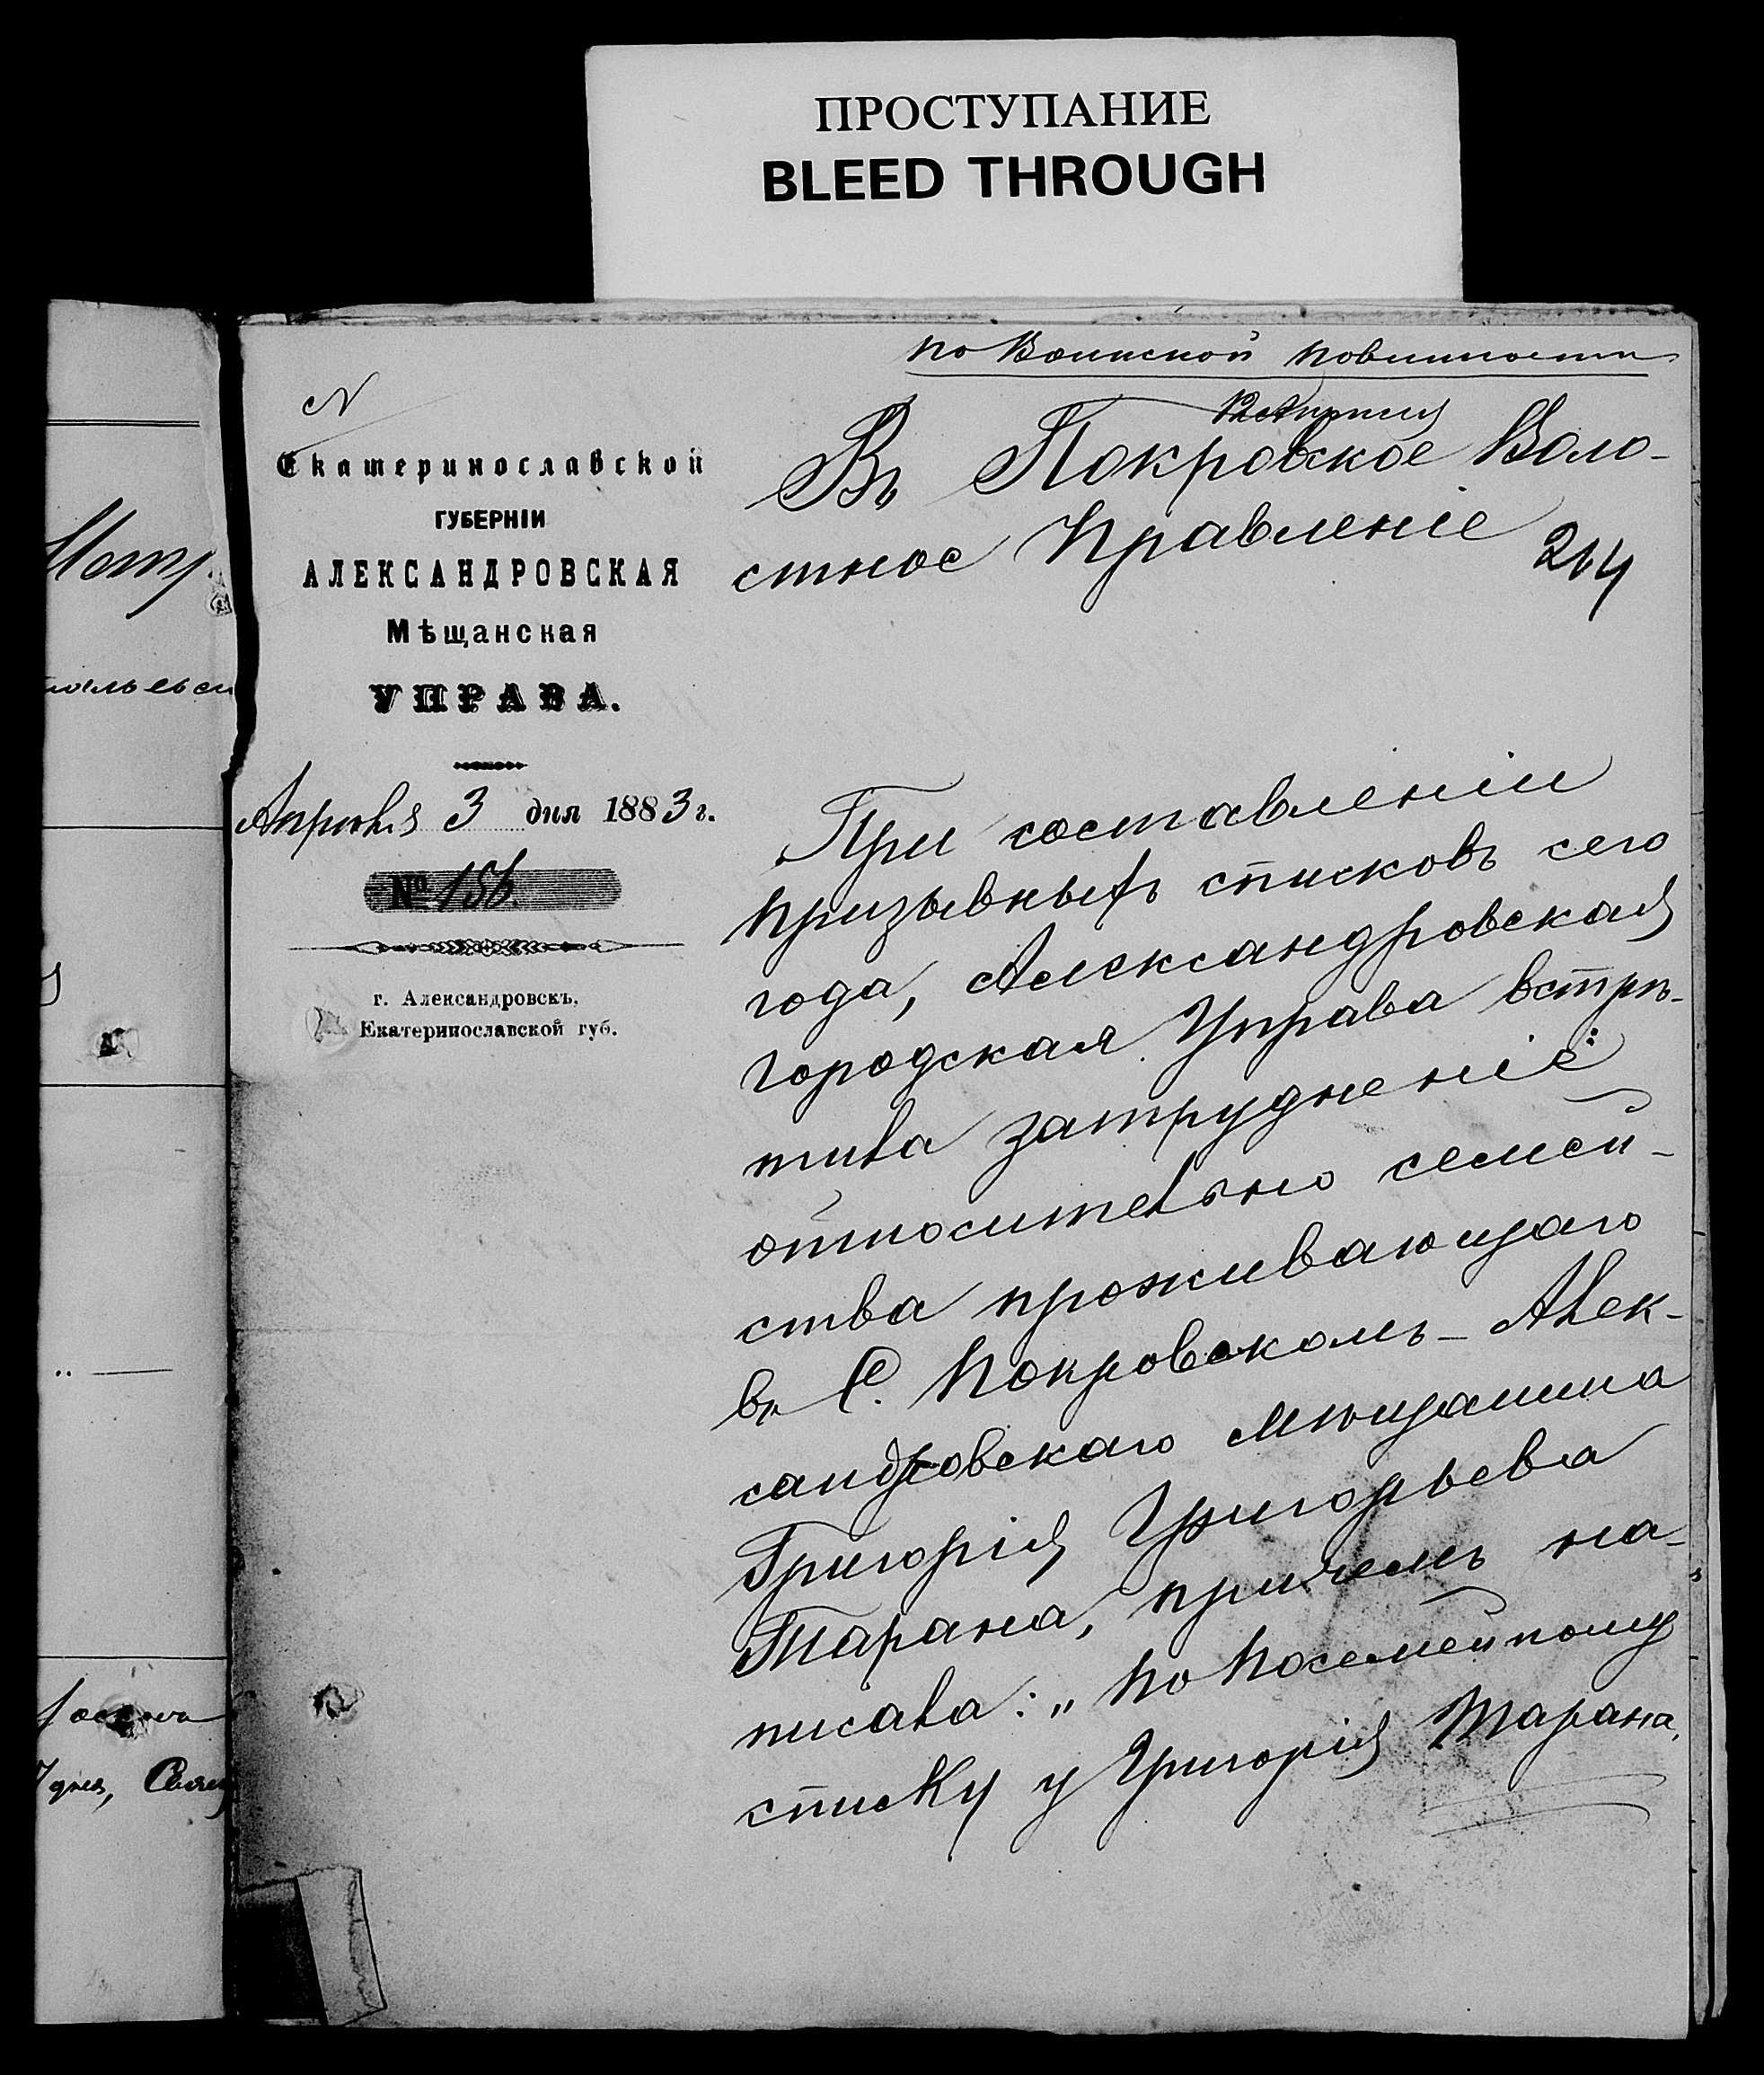 ПРОСТУПАНИЕ
BLEED THROUGH
по Воинской повинности
N
Екатеринославской
ГУБЕРНІИ
АЛЕКСАНДРОВСКАЯ
Мѣщанская
УПРАВА.
Апрѣля 3 дня 1883 г.
№ 156.
г. Александровскъ,
Екатеринославской губ.
12 Апрѣля
Въ Покровское Воло-
стное Правленіе
264
При составленіи
призывныхъ списковъ сего
года, Александровская
городская Управа встрѣ-
тила затрудненіе:
относительно семей-
ства проживающаго
въ С. Покровскомъ - Алек-
сандровскаго мѣщанина
Григорія Григорьева
Тарана, причемъ на-
писала: „по посемейному
списку у Григорія Тарана,
дня,